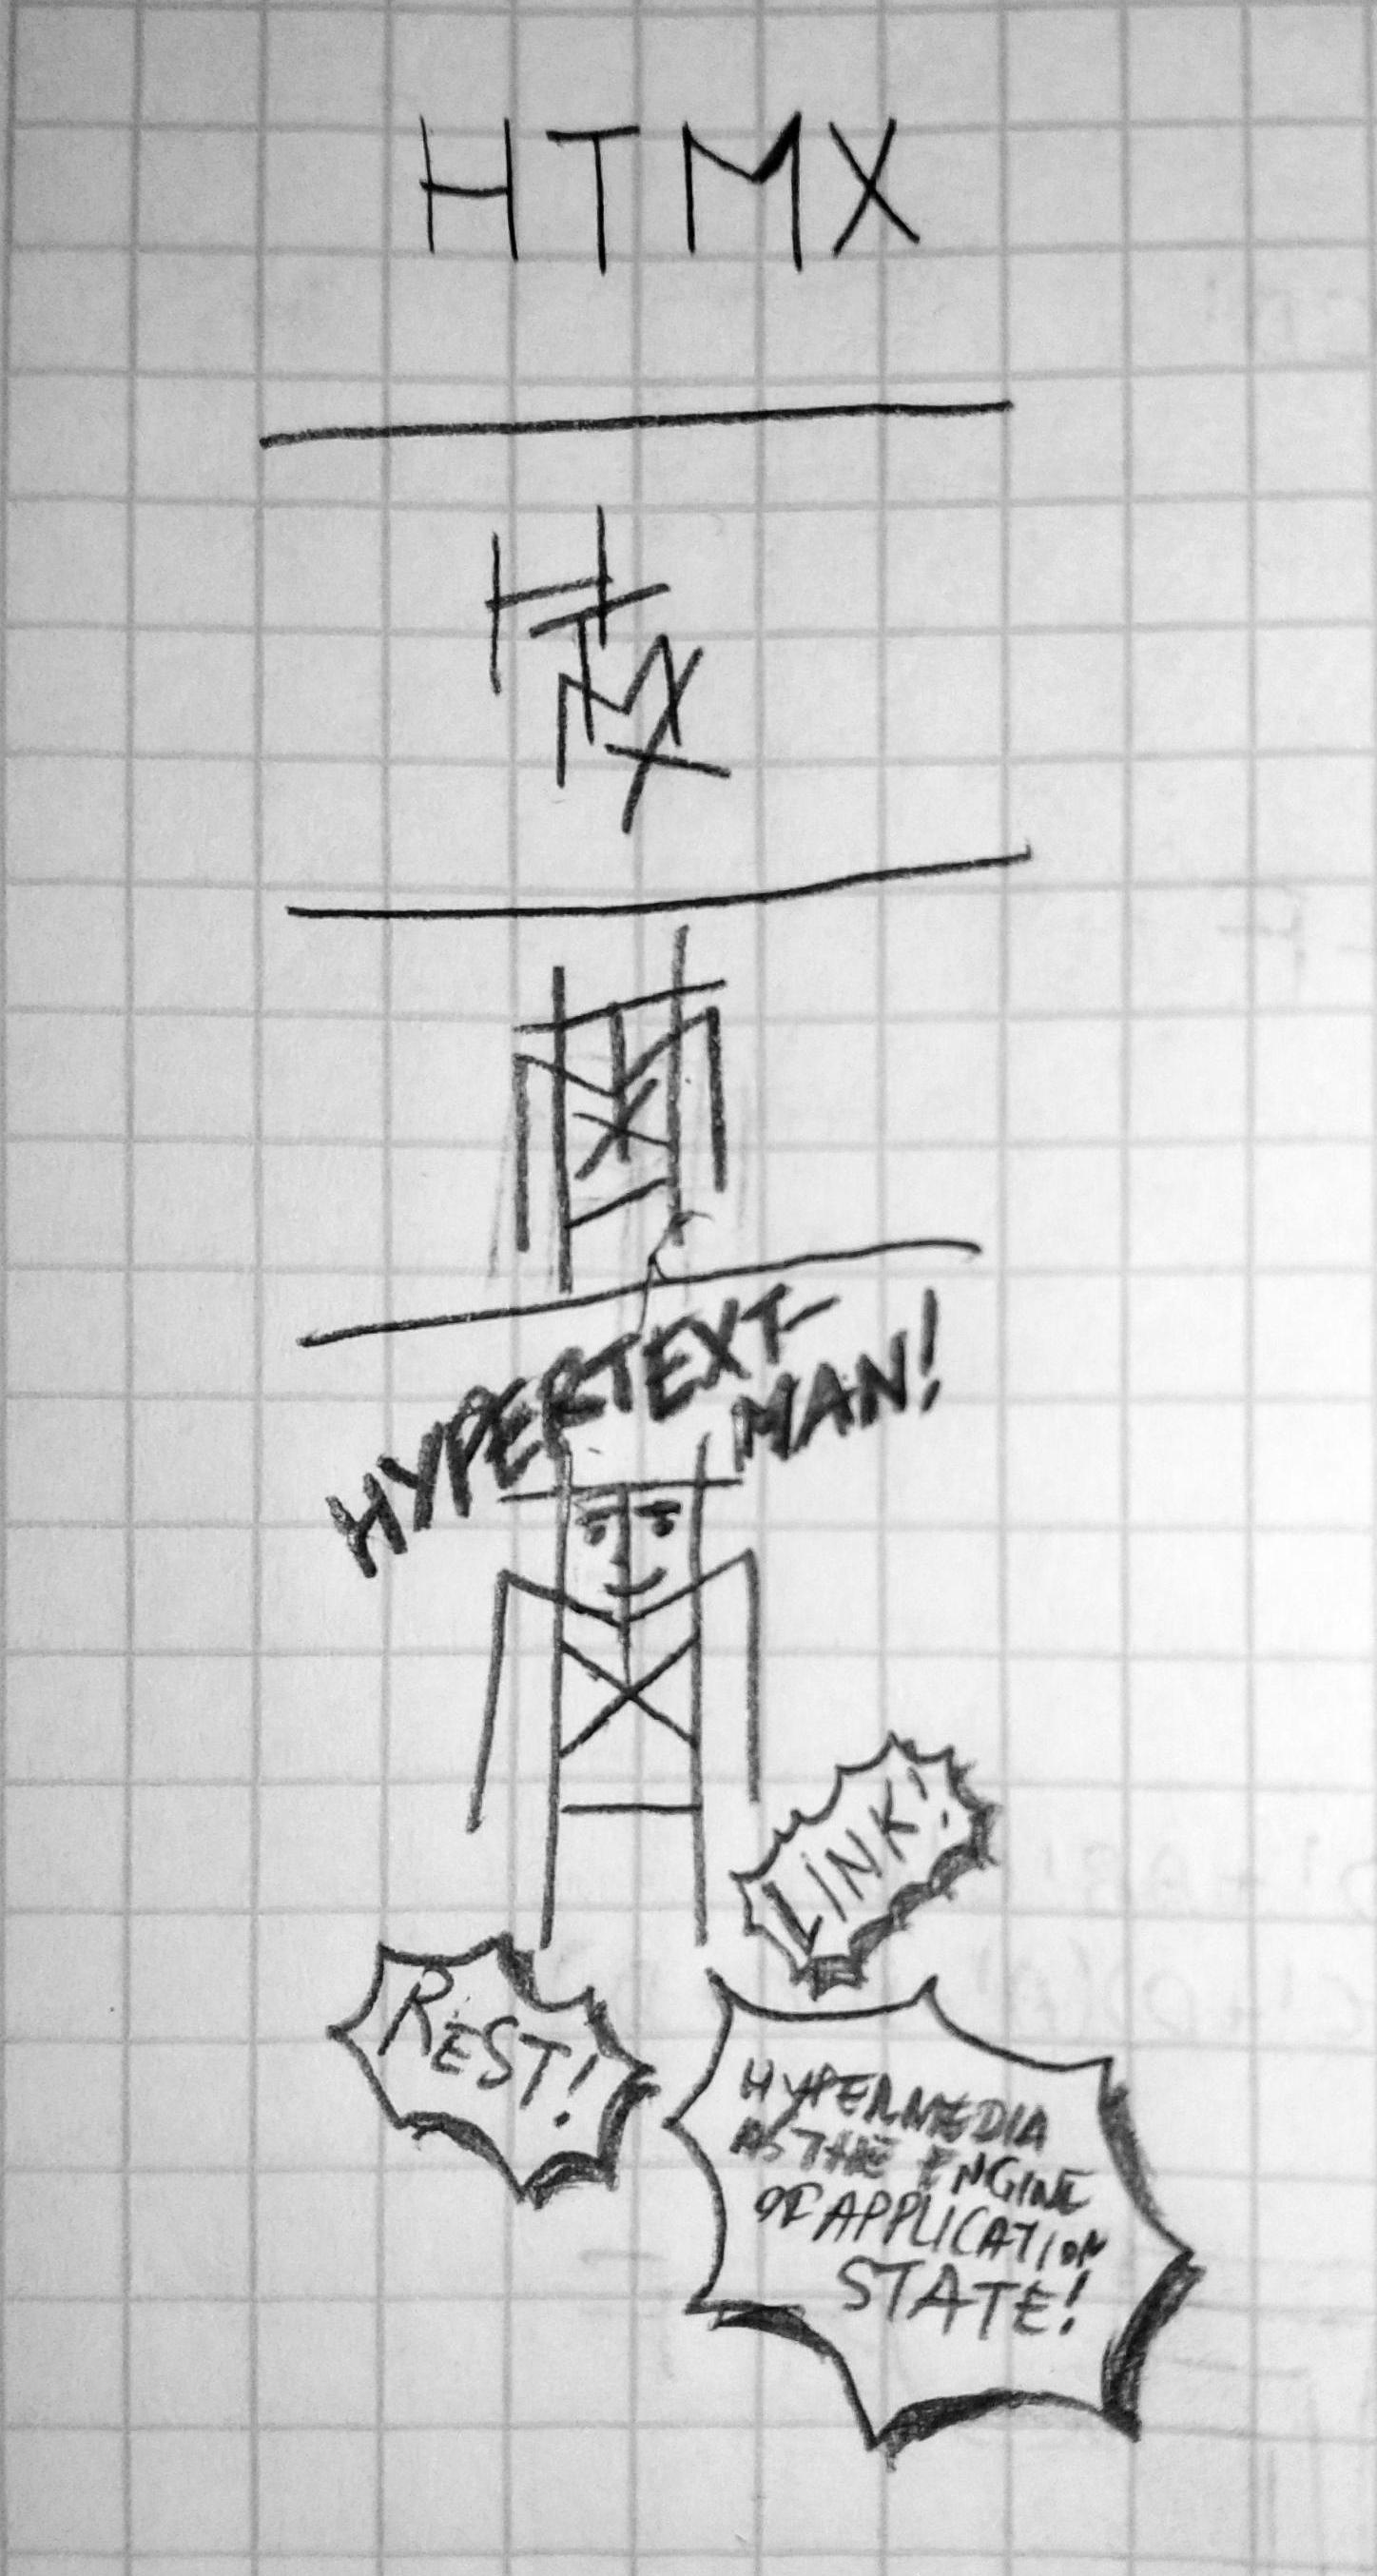 HTMX
HTMX
HTMX
HYPERTEXT-
MAN!
LINK!
REST!
HYPERMEDIA
AS THE ENGINE
OF APPLICATION
STATE!